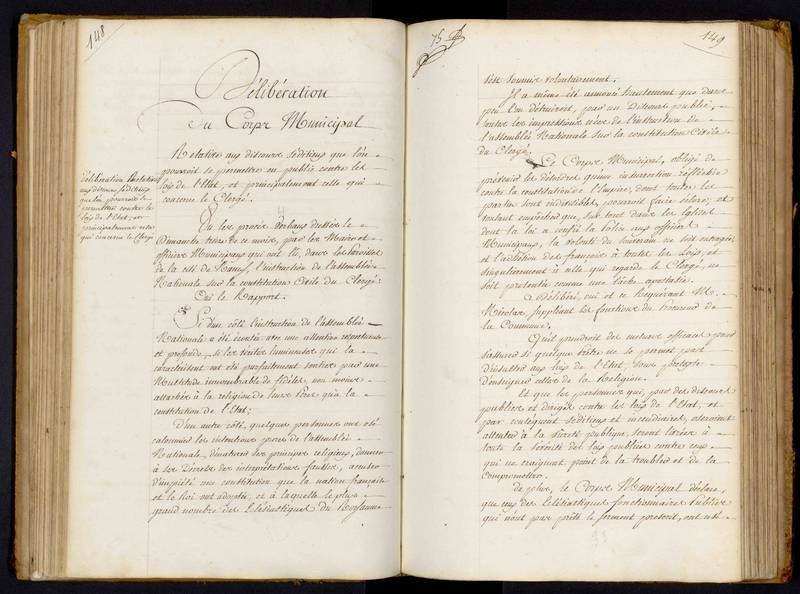 148
Délibération
Du Corps Municipal
Délibération Relative
aux discours séditieux
que l'on pourroit se
permettre contre les
lois de l'Etat, et
principalement celles
qui concerne le Clergé
Relative aux discours séditieux que l'on
pourroit se permettre en public contre les
lois de l'Etat, et principalement celle qui
concerne le Clergé.
Vu les procès verbaux dressés le
Dimanche treize de ce mois, par les Maire et
officiers Municipaux qui ont lu, dans les Paroisses
de la cité de Nancy, l'instruction de l'assemblée
Nationale sur la constitution Civile du Clergé:
Oui le Rapport.
Si d'un côté l'instruction de l'assemblée
Nationale a été écoutée avec une attention respectueuse
et profonde, si les traités lumineux qui la
caractérisent ont été parfaitement sentis par une
Multitude innombrable de fidèles, non moins
attachés à la religion de leurs Peres qu'à la
constitution de l'Etat;
D'un autre côté, quelques personnes ont osé
calomnier les intentions pures de l'assemblée
Nationale, dénaturer ses principes religieux, donner
à ses Décrets des interprétations fausses, accuser
d'impiété une constitution que la nation française
et le Roi ont adoptée, et à laquelle le plus
grand nombre des Ecclésiastiques du Royaume
75
149
s'est soumis volontairement.
Il a même été annoncé hautement que dans
peu l'on détruiroit, par un Discours public,
toutes les impressions nées de l'instruction de
l'assemblée Nationale sur la constitution Civile
du Clergé.
Le Corps Municipal, obligé de
prévenir les désordres qu'une insurrection réfléchie
contre la constitution de l'Empire, dont toutes les
parties sont indivisibles, pourroit faire éclore; et
voulant empêcher que, sur tout dans les Eglises
dont la loi a confié la police aux officiers
Municipaux, la volonté du souverain ne soit outragée,
et l'adhésion des françois à toutes les Lois, et
singulièrement à celle qui regarde le Clergé, ne
soit présentée comme une lâche apostasie.
A Délibéré, oui et ce Requérant M.
Nicolas, suppléant les fonctions du Procureur de
la Commune,
Qu'il prendroit des mesures efficaces pour
s'assurer si quelque Prêtre ne se permet pas
d'insulter aux lois de l'Etat, sous prétexte
d'enseigner celles de la Religion.
Et que les personnes qui, par des discours
publics et dirigés contre les lois de l'Etat, et
par conséquent séditieux et incendiaires, oseroient
attenter à la sûreté publique, seront livrées à
toute la sévérité des lois publiées contre ceux
qui ne craignent point de la troubler et de la
compromettre.
De plus, le Corps Municipal déclare,
que ceux des Ecclésiastiques fonctionnaires Publics
qui n'ont pas prêté le serment prescrit, ont usé